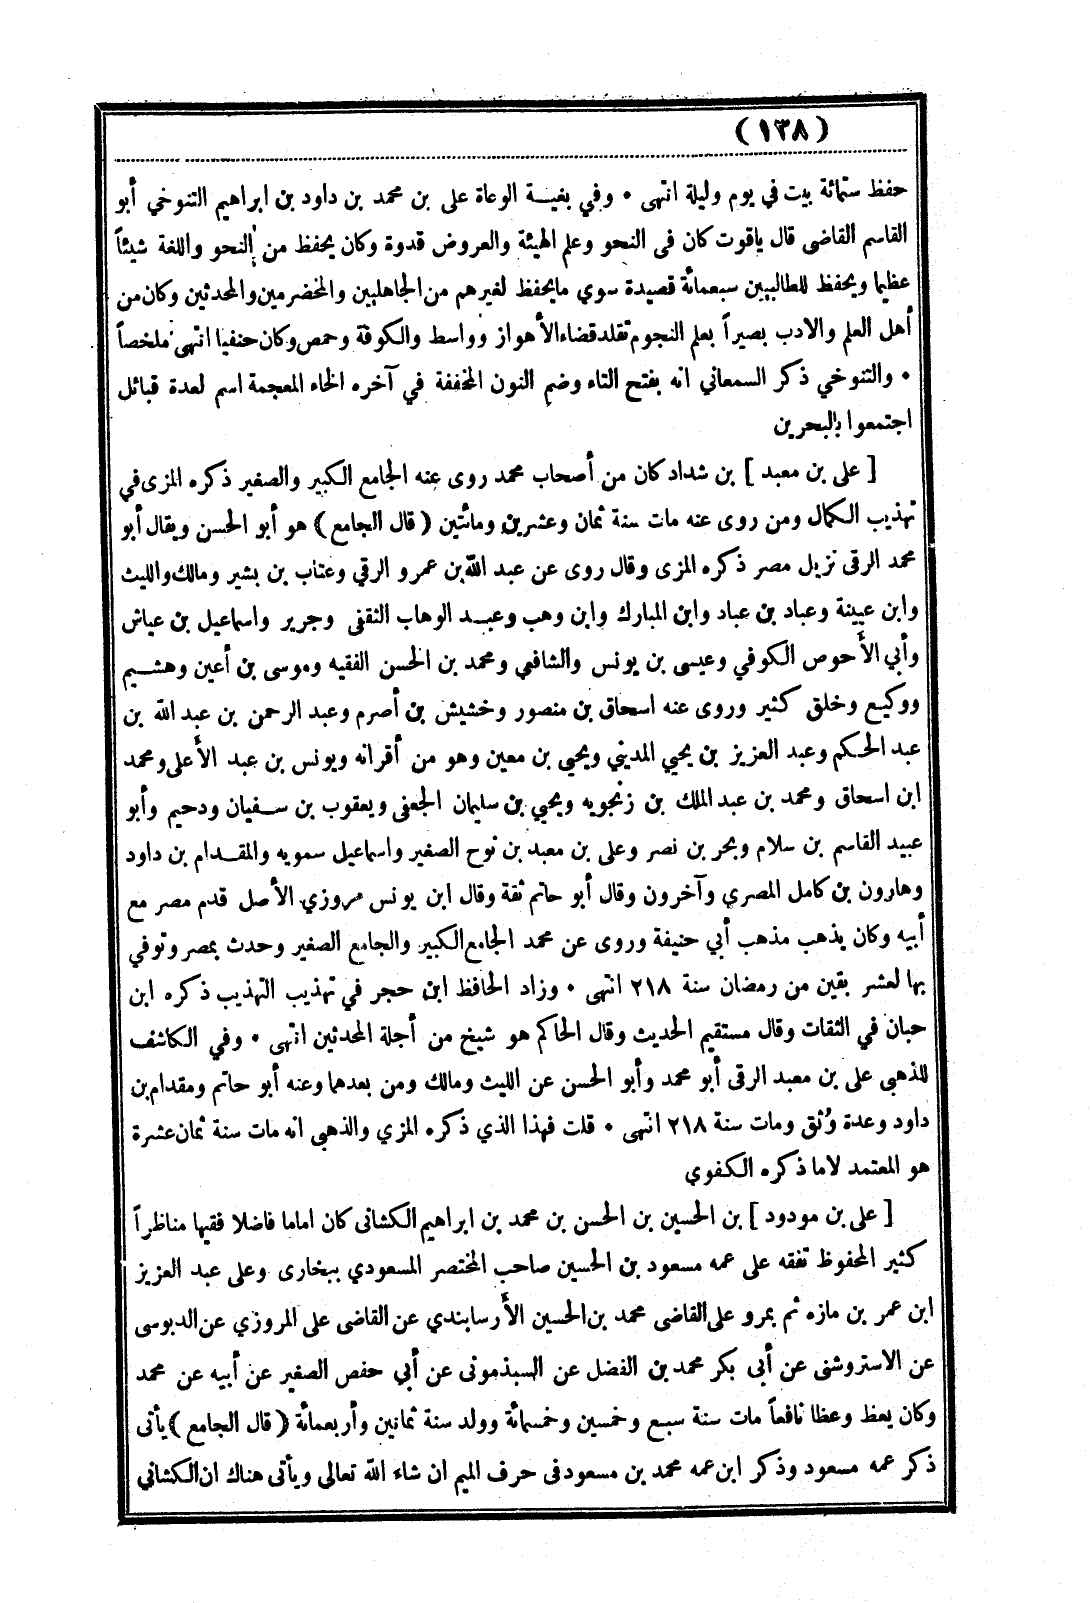 (١٣٨)
حفظ ستمائة بيت في يوم وليلة انتهى • وفي بغيـة الوعاة على بن محمد بن داود بن ابراهيم التنوخي أبو
القاسم القاضى قال ياقوت كان فى النحو وعلم الهيئة والعروض قدوة وكان يحفظ من النحو واللغة شيئاً
عظيما ويحفظ للطالبيين سبعمائة قصيدة سوي مايحفظ لغيرهم من الجاهليين والمخضرمين والمحدثين وكان من
أهل العلم والادب بصيراً بعلم النجوم تقلد قضاء الأهواز وواسط والكوفة وحمص وكان حنفيا انتهى ملخصاً
• والتنوخي ذكر السمعاني انه بفتح التاء وضم النون المخففة في آخره الخاء المعجمة اسم لعدة قبائل
اجتمعوا بالبحرين
[ على بن معبد ] بن شداد كان من أصحاب محمد روى عنه الجامع الكبير والصغير ذكره المزى في
تهذيب الكمال ومن روى عنه مات سنة ثمان وعشرين ومائتين ( قال الجامع ) هو أبو الحسن ويقال أبو
محمد الرقى نزيل مصر ذكره المزى وقال روى عن عبد الله بن عمرو الرقي وعتاب بن بشير ومالك والليث
وابن عيينة وعباد بن عباد وابن المبارك وابن وهب وعبـد الوهاب الثقفى وجرير واسماعيل بن عياش
وأبي الأحوص الكوفي وعيسى بن يونس والشافعى ومحمد بن الحسن الفقيه وموسى بن أعين وهشـيم
ووكيـع وخلق كثير وروى عنه اسحاق بن منصور وخشيش بن أصرم وعبد الرحمن بن عبد الله بن
عبد الحكم وعبد العزيز بن يحيي المديني ويحيى بن معين وهو من أقرانه ويونس بن عبد الأعلى ومحمد
ابن اسحاق ومحمد بن عبد الملك بن زنجويه ويحيي بن سليمان الجعفى ويعقوب بن سـفيان ودحيم وأبو
عبيد القاسم بن سلام وبحر بن نصر وعلى بن معبد بن نوح الصغير واسماعيل سمويه والمقـدام بن داود
وهارون بن كامل المصري وآخرون وقال أبو حاتم ثقة وقال ابن يونس مروزي الأصل قدم مصر مع
أبيه وكان يذهب مذهب أبي حنيفة وروى عن محمد الجامع الكبير والجامع الصغير وحدث بمصر وتوفي
بها لعشر بقين من رمضان سنة ٢١٨ انتهى • وزاد الحافظ ابن حجر في تهذيب التهذيب ذكره ابن
حبان في الثقات وقال مستقيم الحديث وقال الحاكم هو شيخ من أجلة المحدثين انتهى • وفي الكاشف
للذهبي على بن معبد الرقى أبو محمد وأبو الحسن عن الليث ومالك ومن بعدهما وعنه أبو حاتم ومقدام بن
داود وعدة وُثق ومات سنة ٢١٨ انتهى • قلت فهذا الذي ذكره المزي والذهبي انه مات سنة ثمان عشرة
هو المعتمد لا ما ذكره الكفوي
[ على بن مودود ] بن الحسين بن الحسن بن محمد بن ابراهيم الكشانى كان اماما فاضلا فقيها مناظراً
كثير المحفوظ تفقه على عمه مسعود بن الحسين صاحب المختصر المسعودي ببخارى وعلى عبد العزيز
ابن عمر بن مازه ثم بمرو على القاضى محمد بن الحسين الأرسابندي عن القاضى على المروزي عن الدبوسى
عن الاستروشنى عن أبى بكر محمد بن الفضل عن السبذمونى عن أبي حفص الصغير عن أبيه عن محمد
وكان يعظ وعظا نافعاً مات سنة سبع وخمسين وخمسمائة وولد سنة ثمانين وأربعمائة ( قال الجامع ) يأتى
ذكر عمه مسعود وذكر ابن عمه محمد بن مسعود فى حرف الميم ان شاء الله تعالى ويأتى هناك ان الكشاني